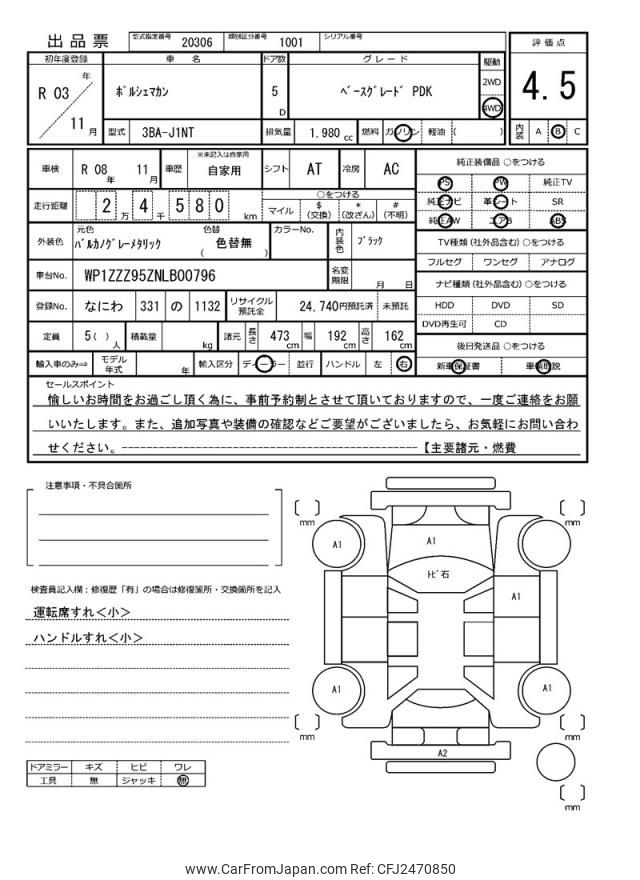 出品票 型式指定番号 20306 類別区分番号 1001 シリアル番号
初年度登録 車 名 ドア数 グレード 駆動 評価点
R 03 年 11 月 ﾎﾟﾙｼｪﾏｶﾝ 5 D ﾍﾞｰｽｸﾞﾚｰﾄﾞ PDK 2WD 4WD 4.5
型式 3BA-J1NT 排気量 1.980 cc 燃料 ガソリン 軽油 ( ) 内装 A B C
車検 R 08 年 11 月 車歴 ※未記入は自家用 自家用 シフト AT 冷房 AC
走行距離 2 万 4 千 5 8 0 km ○をつける
マイル $ (交換) * (改ざん) # (不明)
外装色 元色 ﾊﾞﾙｶﾉｸﾞﾚｰﾒﾀﾘｯｸ 色替 色替無 ( ) カラーNo. 内装色 ﾌﾞﾗｯｸ
車台No. WP1ZZZ95ZNLB00796 名変期限 月 日
登録No. なにわ 331 の 1132 リサイクル預託金 24,740円預託済 未預託
定員 5( ) 人 積載量 kg 諸元 長さ 473 cm 幅 192 cm 高さ 162 cm
輸入車のみ⇒ モデル年式 年 輸入区分 ディーラー 並行 ハンドル 左 右
純正装備品 ○をつける
PS PW 純正TV
純正ナビ 革シート SR
純正AW エアB ABS
TV種類 (社外品含む) ○をつける
フルセグ ワンセグ アナログ
ナビ種類 (社外品含む) ○をつける
HDD DVD SD
DVD再生可 CD
後日発送品 ○をつける
新車保証書 車輌取説
セールスポイント
愉しいお時間をお過ごし頂く為に、事前予約制とさせて頂いておりますので、一度ご連絡をお願
いいたします。また、追加写真や装備の確認などご要望がございましたら、お気軽にお問い合わ
せください。----------------------------------------------【主要諸元・燃費
注意事項・不具合箇所
検査員記入欄：修復歴「有」の場合は修復箇所・交換箇所を記入
運転席すれ＜小＞
ハンドルすれ＜小＞
ドアミラー キズ ヒビ ワレ
工具 無 ジャッキ 無
mm mm
A1 A1
ﾄﾋﾞ石
A1
A1 A1
mm mm
A2
mm
www.CarFromJapan.com Ref: CFJ2470850